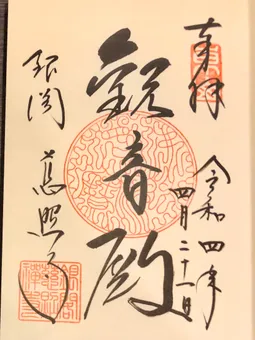 奉拝
令和四年
四月二十一日
観音殿
銀閣
慈照寺